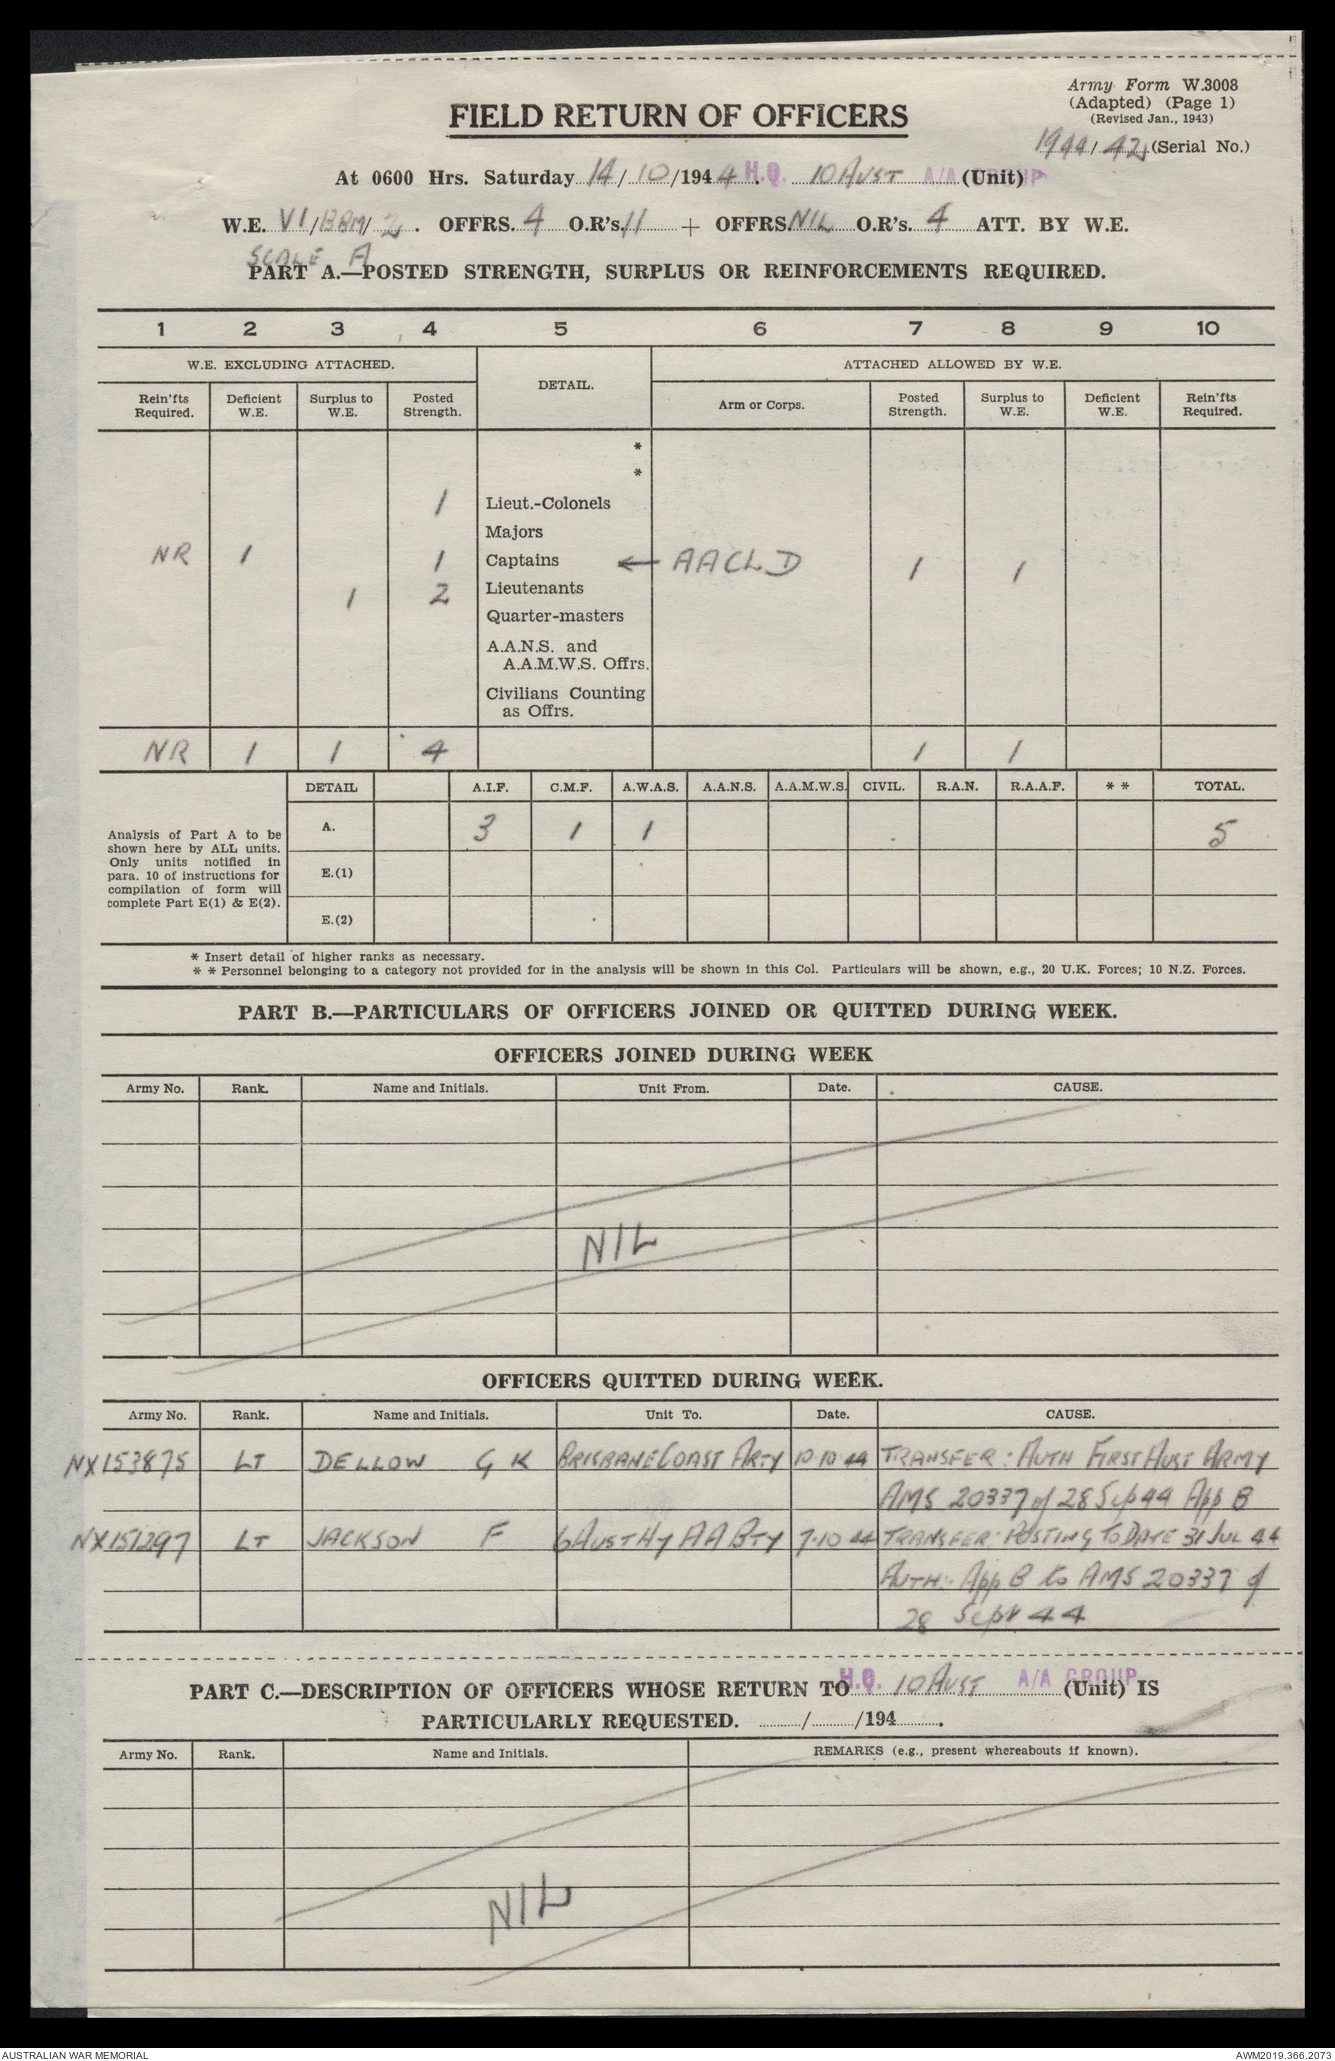 Army Form W.3008
(Adapted) (Page 1)
(Revised Jan., 1943)
FIELD RETURN OF OFFICERS
1944/42 (Serial No.)
At 0600 Hrs. Saturday 14/10/1944. H.Q. 10 AUST A/A GROUP (Unit)
W.E. VI/BBM/2. OFFRS. 4 O.R's. 11 + OFFRS. NIL O.R's. 4 ATT. BY W.E.
SCALE A
PART A.—POSTED STRENGTH, SURPLUS OR REINFORCEMENTS REQUIRED.
1 2 3 4 5 6 7 8 9 10
W.E. EXCLUDING ATTACHED. DETAIL. ATTACHED ALLOWED BY W.E.
Rein'fts Required. Deficient W.E. Surplus to W.E. Posted Strength. Arm or Corps. Posted Strength. Surplus to W.E. Deficient W.E. Rein'fts Required.
*
*
1 Lieut.-Colonels
Majors
NR 1 1 Captains ← AACLD 1 1
1 2 Lieutenants
Quarter-masters
A.A.N.S. and
A.A.M.W.S. Offrs.
Civilians Counting
as Offrs.
NR 1 1 4 1 1
DETAIL A.I.F. C.M.F. A.W.A.S. A.A.N.S. A.A.M.W.S. CIVIL. R.A.N. R.A.A.F. * * TOTAL.
A. 3 1 1 5
Analysis of Part A to be
shown here by ALL units.
Only units notified in
para. 10 of instructions for
compilation of form will
complete Part E(1) & E(2).
E.(1)
E.(2)
* Insert detail of higher ranks as necessary.
* * Personnel belonging to a category not provided for in the analysis will be shown in this Col. Particulars will be shown, e.g., 20 U.K. Forces; 10 N.Z. Forces.
PART B.—PARTICULARS OF OFFICERS JOINED OR QUITTED DURING WEEK.
OFFICERS JOINED DURING WEEK
Army No. Rank. Name and Initials. Unit From. Date. CAUSE.
NIL
OFFICERS QUITTED DURING WEEK.
Army No. Rank. Name and Initials. Unit To. Date. CAUSE.
NX153875 LT DELLOW G K BRISBANE COAST ARTY 10.10.44 TRANSFER: AUTH FIRST AUST ARMY
AMS 20337 of 28 Sep 44 App B
NX151297 LT JACKSON F 6 AUST Hy AA BTY 7.10.44 TRANSFER: POSTING TO DATE 31 JUL 44
AUTH: App B to AMS 20337 of
28 Sept 44
PART C.—DESCRIPTION OF OFFICERS WHOSE RETURN TO H.Q. 10 AUST A/A GROUP (Unit) IS
PARTICULARLY REQUESTED. ........../........../194...........
Army No. Rank. Name and Initials. REMARKS (e.g., present whereabouts if known).
NIL
AUSTRALIAN WAR MEMORIAL
AWM2019.366.2073